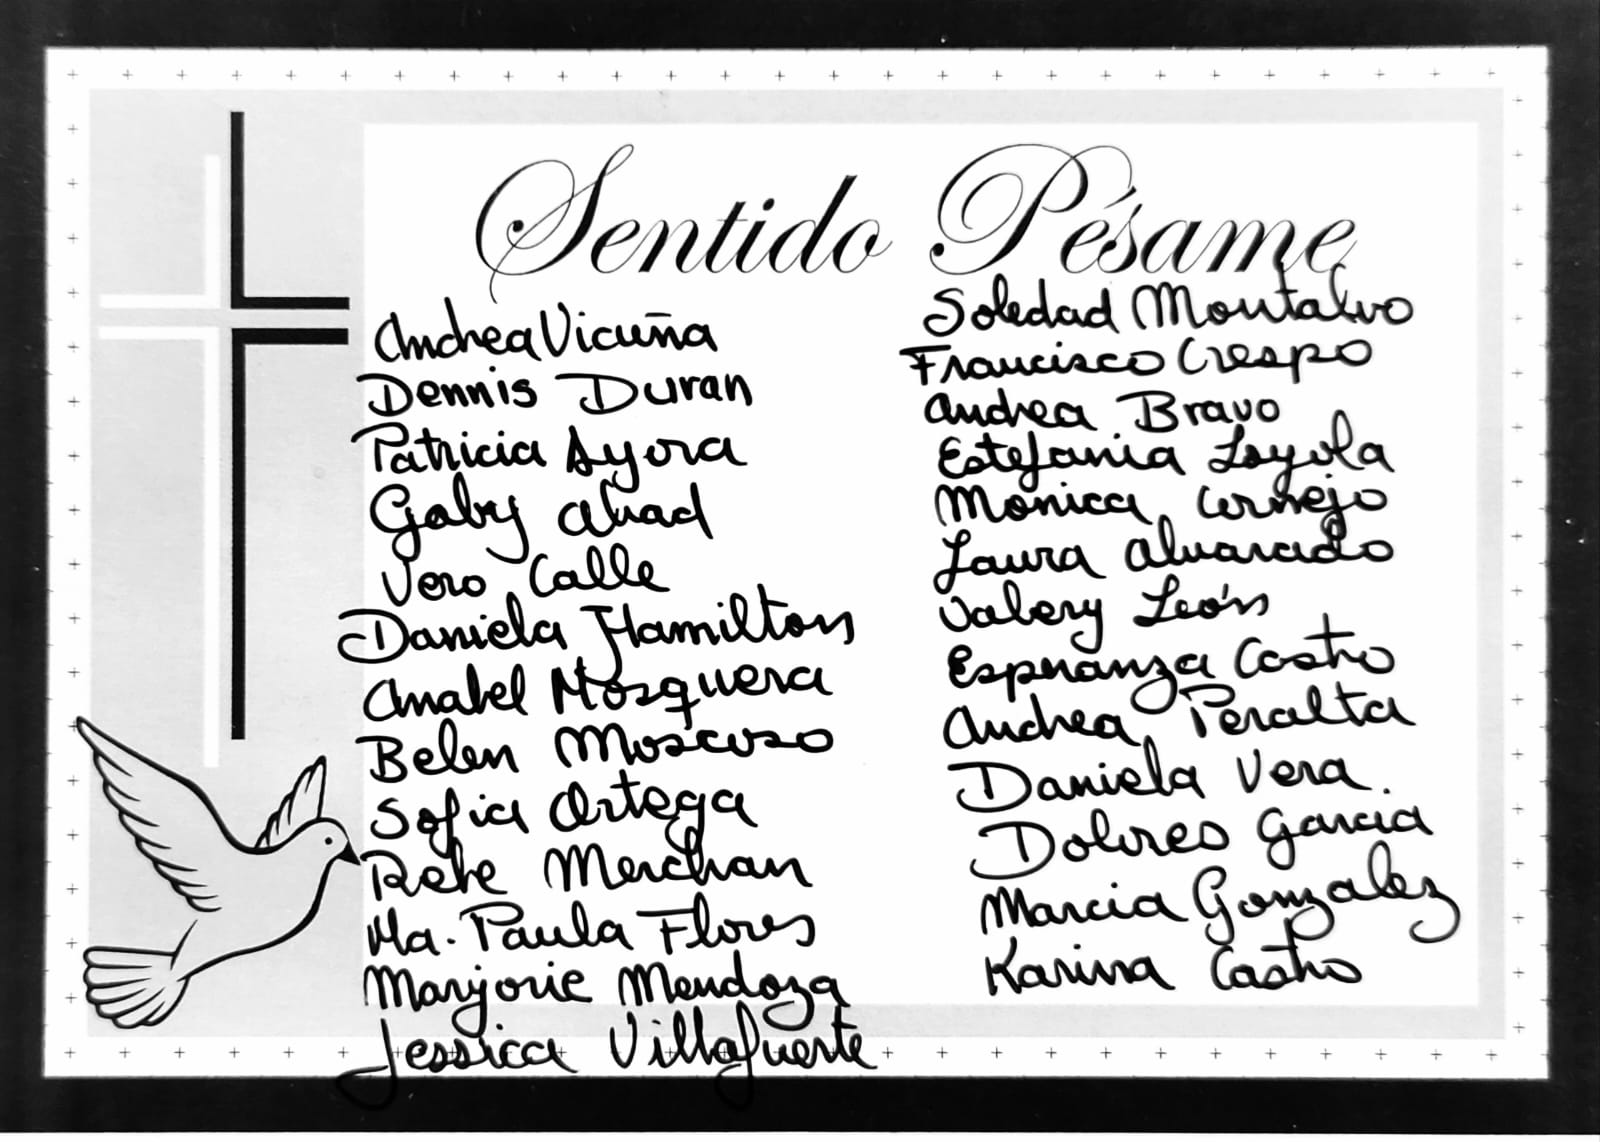 Sentido Pésame
Andrea Vicuña
Dennis Duran
Patricia Ayora
Gaby Abad
Vero Calle
Daniela Hamilton
Anabel Mosquera
Belen Moscoso
Sofia Ortega
Rebe Merchan
Ma. Paula Flores
Marjorie Mendoza
Jessica Villafuerte
Soledad Montalvo
Francisco Crespo
Andrea Bravo
Estefania Loyola
Monica Cornejo
Laura Alvarado
Valery León
Esperanza Castro
Andrea Peralta
Daniela Vera
Dolores Garcia
Marcia Gonzalez
Karina Castro